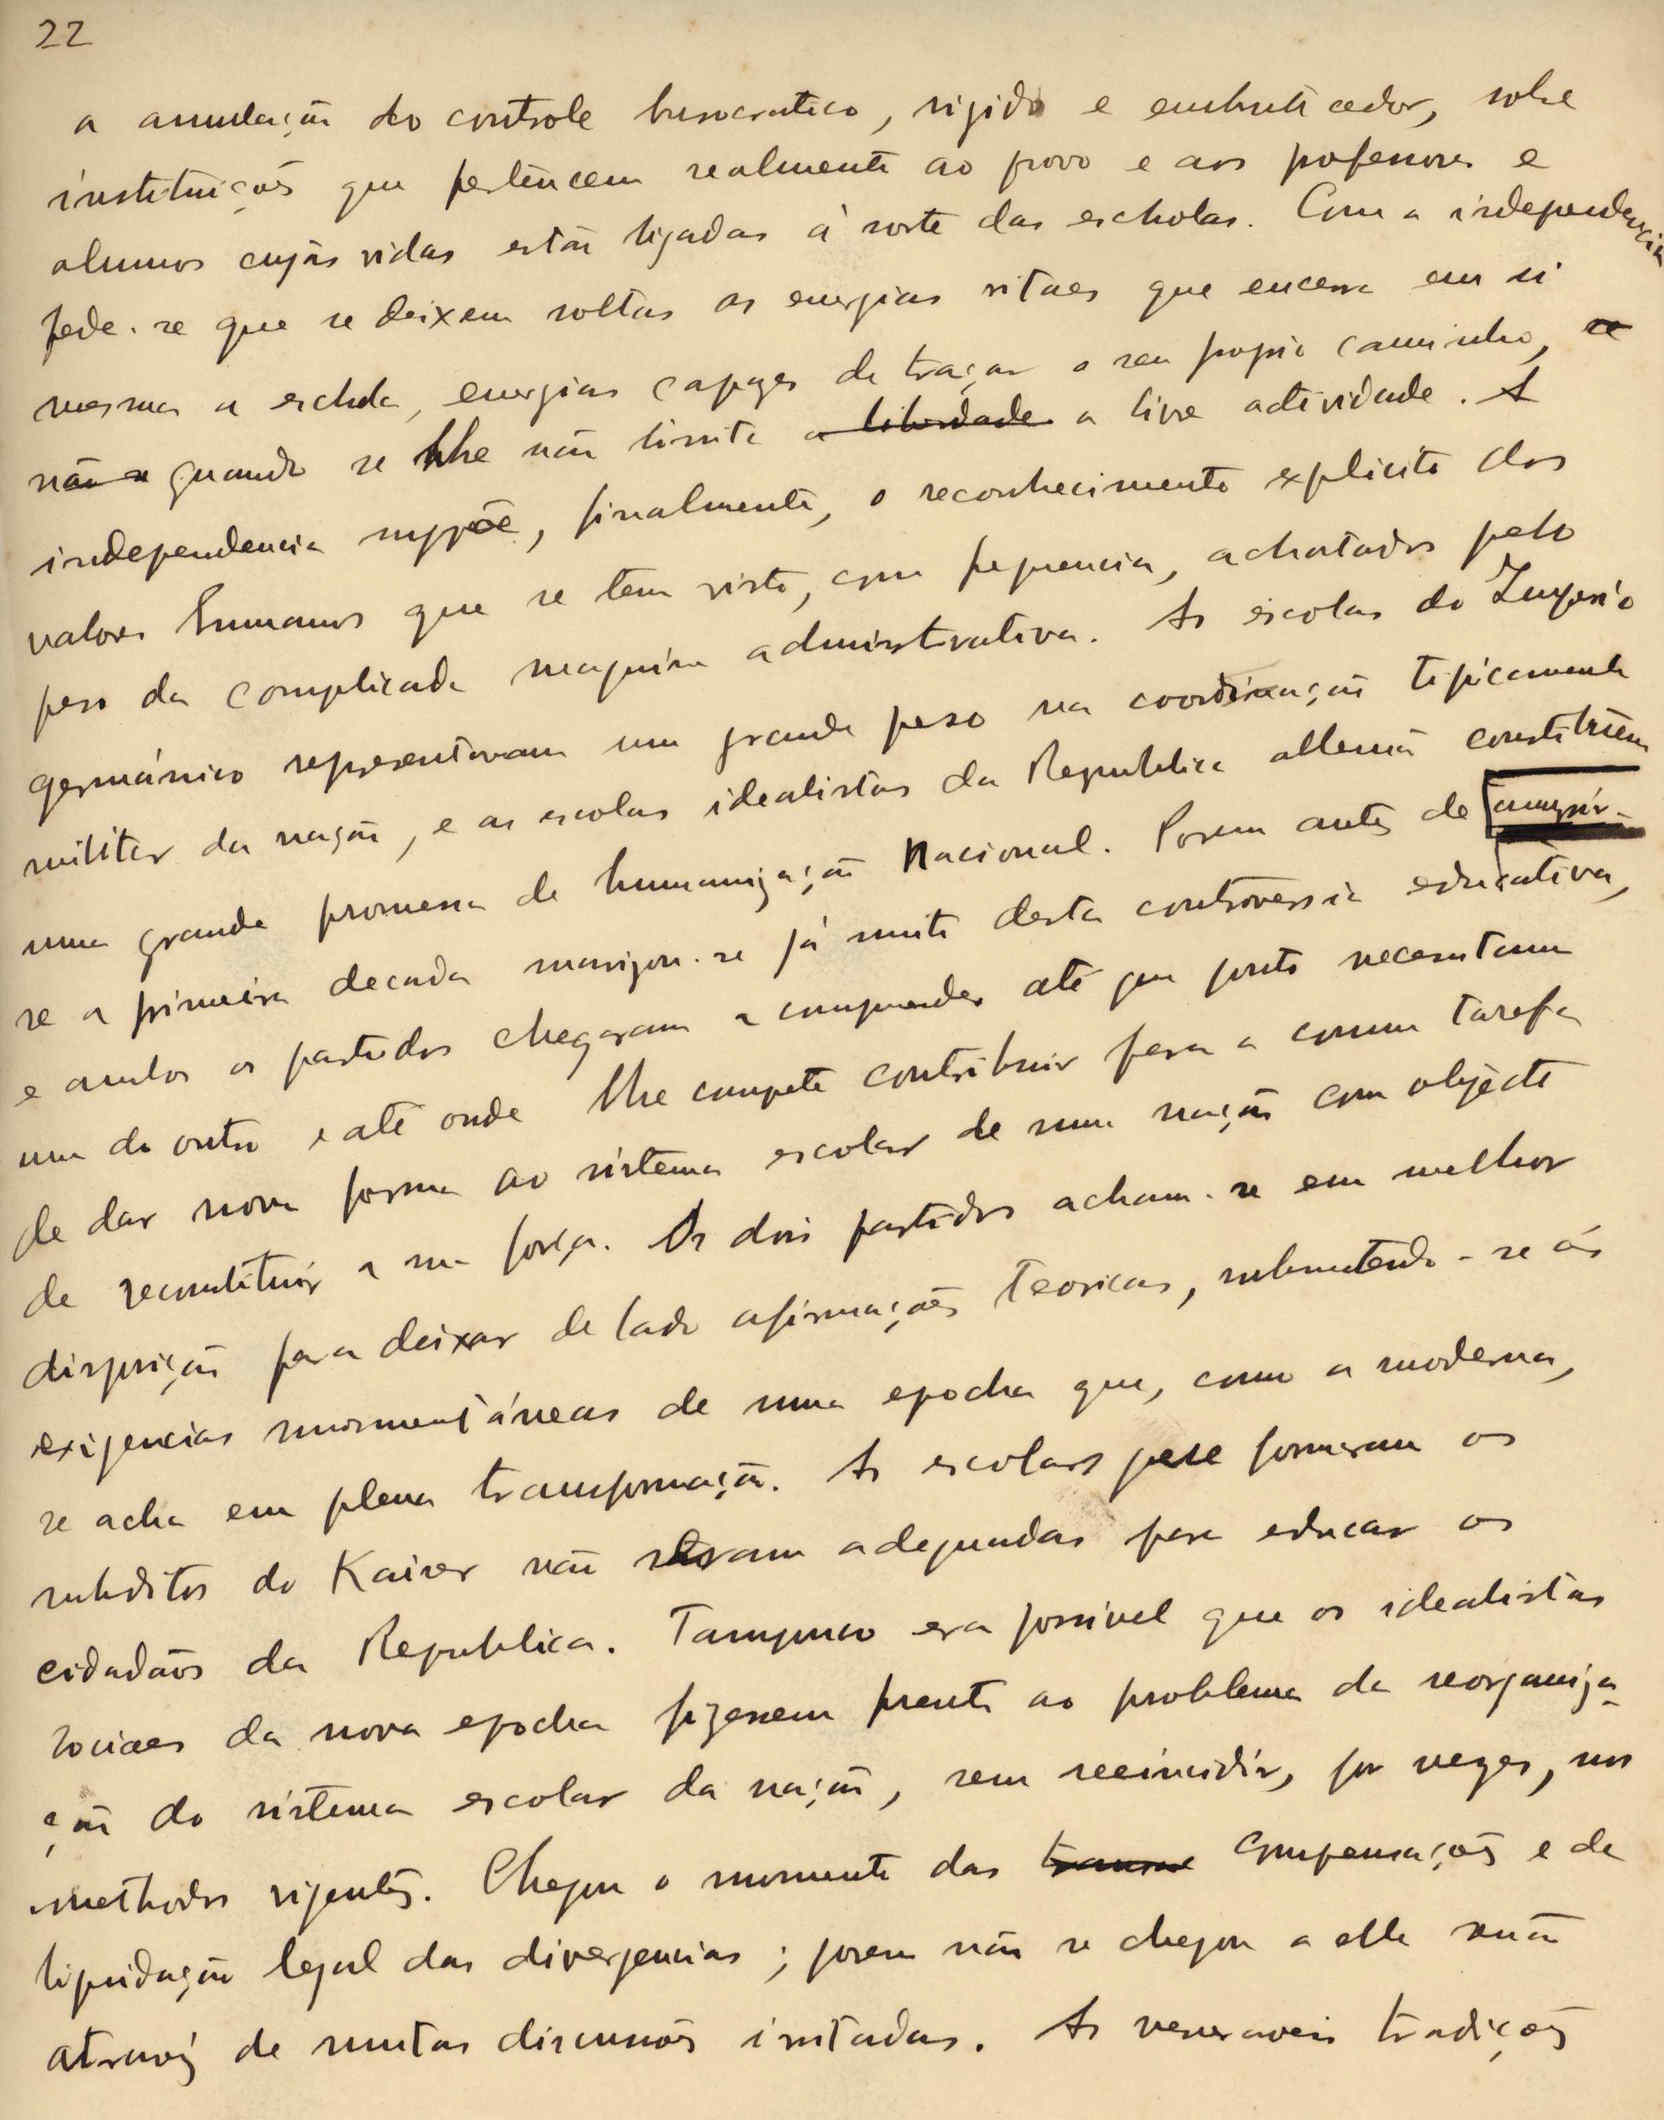 22
a annulação do controle burocratico, rigido e embrutecedor, sobre
instituições que pertencem realmente ao povo e aos professores e
alumnos cujas vidas estão ligadas á sorte das escholas. Com a independencia
pede-se que se deixem soltas as energias vitaes que encerra em si
mesma a eschola, energias capazes de traçar o seu proprio caminho, se
não a quando se lhe não limite a liberdade a livre actividade. A
independencia suppõe, finalmente, o reconhecimento explicito dos
valores humanos que se tem visto, com frequencia, achatados pelo
peso da complicada maquina administrativa. As escolas do Imperio
germánico representavam um grande peso na coordenação tipicamente
militar da nação, e as escolas idealistas da Republica allemã constituem
uma grande promessa de humanização nacional. Porem antes de cumprir-
se a primeira decada mitigou-se já muito desta controversia educativa,
e ambos os partidos chegaram a comprender até que ponto necessitam
um do outro e até onde lhe compete contribuir para a comum tarefa
de dar nova forma ao sistema escolar de uma nação com objecto
de reconstituir a sua força. Os dois partidos acham-se em melhor
disposição para deixar de lado afirmações teoricas, submetendo-se ás
exigencias momentáneas de uma epocha que, como a moderna,
se acha em plena transformação. As escolas que formaram os
subditos do Kaiser não eram adequadas para educar os
cidadãos da Republica. Tampouco era possivel que os idealistas
sociaes da nova epocha fizessem frente ao problema da reorganiza-
ção do sistema escolar da nação, sem reeincidir, por vezes, nos
methodos vigentes. Chegou o momento das transa compensações e da
liquidação legal das divergencias; porem não se chegou a elle senão
através de muitas discussões irritadas. As veneraveis tradições